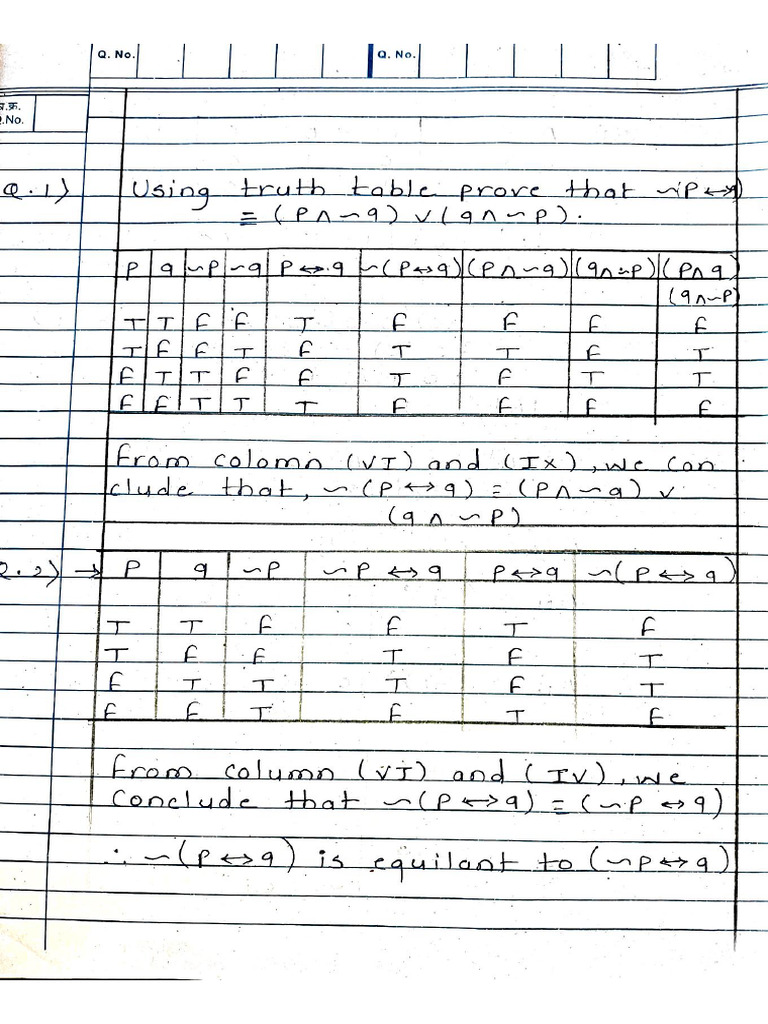 Q. No.
Q. No.
प्र.क्र.
Q.No.
Q.1) Using truth table prove that ~(P↔q)
≡ (P∧~q) ∨ (q∧~P).
P q ~P ~q P↔q ~(P↔q) (P∧~q) (q∧~P) (P∧q)
(q∧~P)
T T F F T F F F F
T F F T F T T F T
F T T F F T F T T
F F T T T F F F F
From colomn (VI) and (IX), we con
clude that, ~(P↔q) = (P∧~q) ∨
(q∧~P)
Q.2) → P q ~P ~P ↔ q P↔q ~(P↔q)
T T F F T F
T F F T F T
F T T T F T
F F T F T F
From column (VI) and (IV), we
conclude that ~(P↔q) = (~P ↔ q)
∴ ~(P↔q) is equilant to (~P↔q)